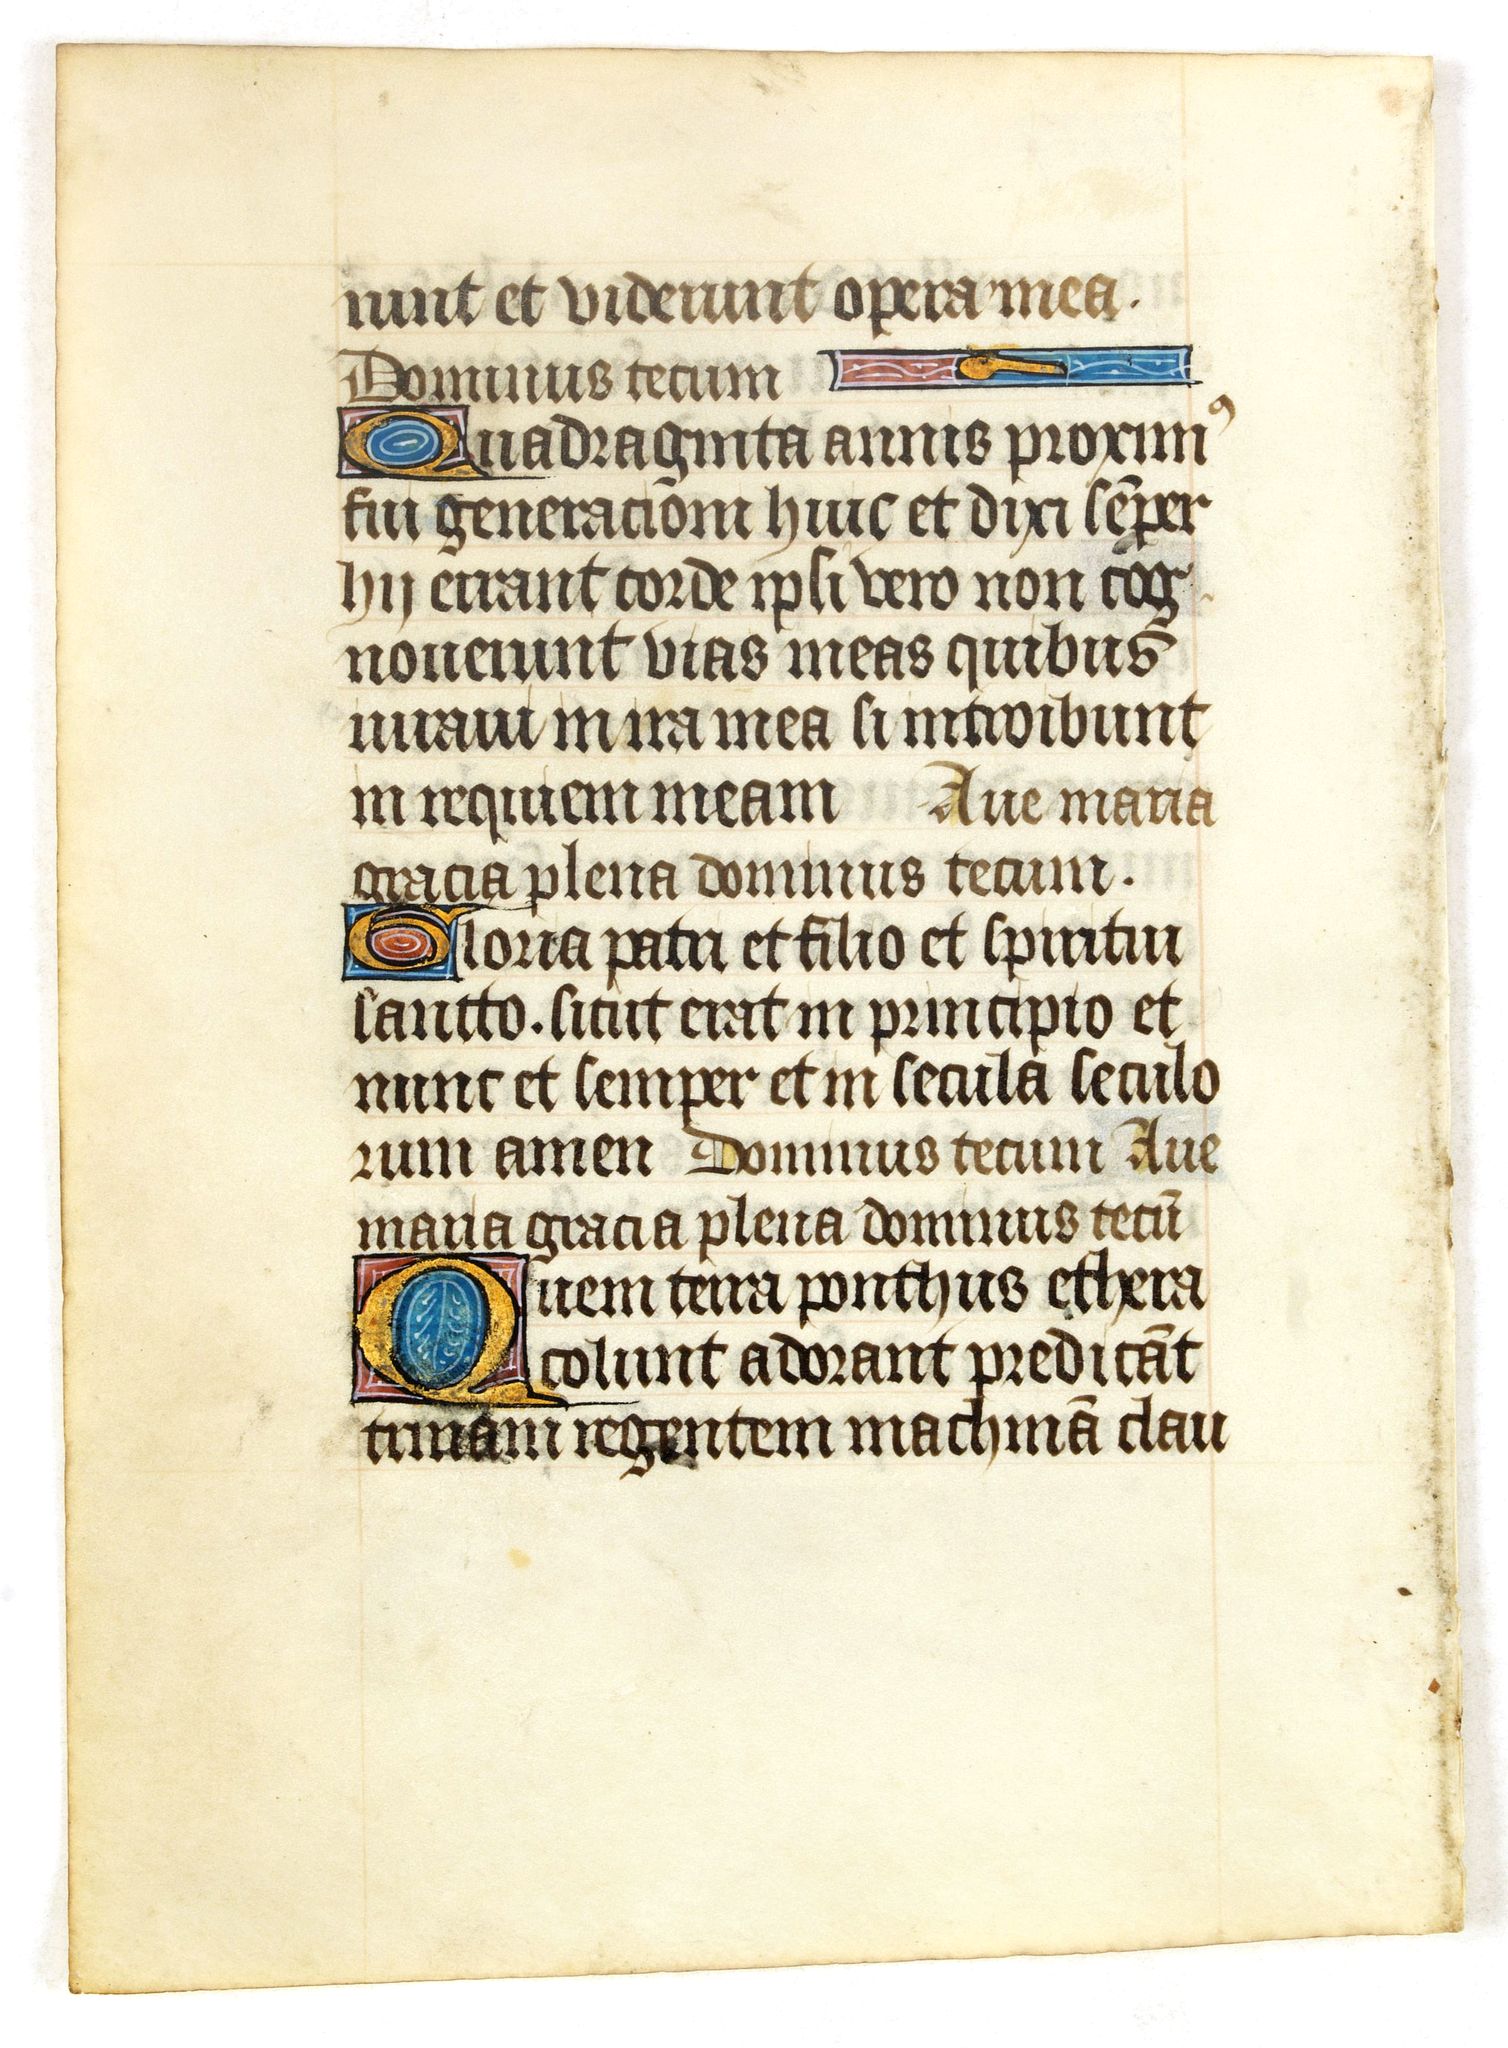 runt et viderunt opera mea.
Dominus tecum
Quadraginta annis proximꝰ
fui generaciōni huic et dixi sēper
hij errant corde ipsi vero non cōg
nouerunt vias meas quibus
iuraui in ira mea si introibunt
in requiem meam Aue maria
gracia plena dominus tecum.
Gloria patri et filio et spiritui
sancto. sicut erat in principio et
nunc et semper et in secula seculo
rum amen Dominus tecum Aue
maria gracia plena dominus tecū
Quem terra ponthus ethera
colunt adorant predicāt
trinam regentem machinā clau